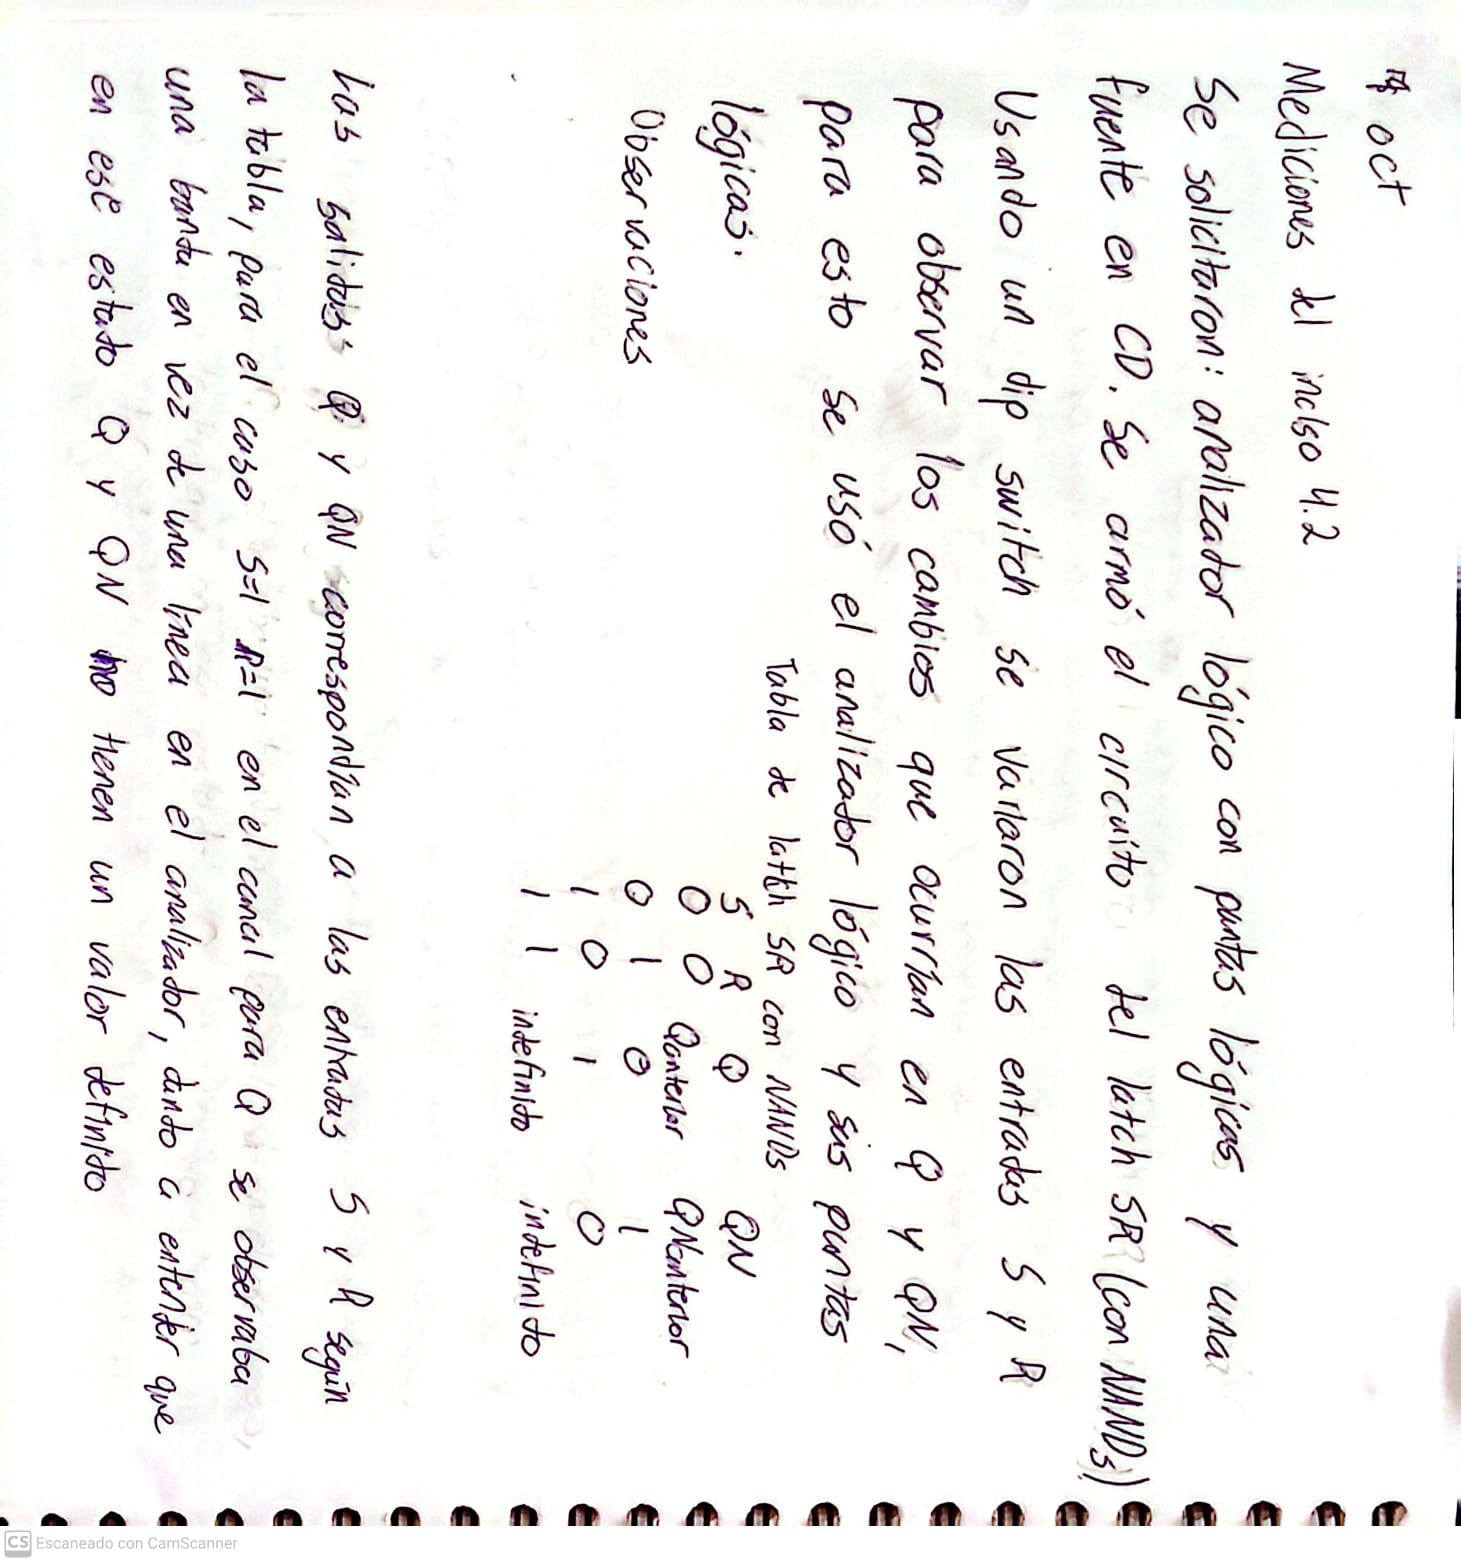 oct
Mediciones del inclso 4.2
Se solicitaron: analizador lógico con puntas lógicas y una
fuente en CD. Se armó el circuito del latch SR (con NANDs)
Usando un dip switch se variaron las entradas S y R
para observar los cambios que ocurrían en Q y QN,
para esto se usó el analizador lógico y sus puntas
lógicas.
Tabla de latch SR con NANDs
S R Q QN
0 0 Qanterior QNanterior
0 1 0 1
1 0 1 0
1 1 indefinido indefinido
Observaciones
Las salidas Q y QN correspondían a las entradas S y R según
la tabla, para el caso S=1 R=1 en el canal para Q se observaba
una banda en vez de una línea en el analizador, dando a entender que
en ese estado Q y QN no tienen un valor definido
CS Escaneado con CamScanner